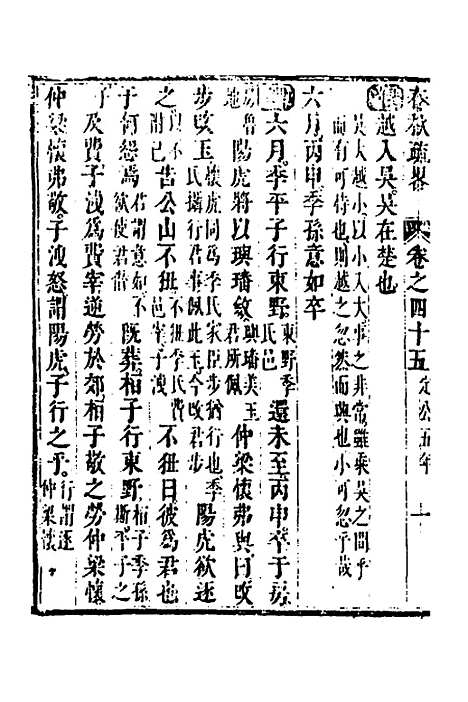 春秋疏畧 卷之四十五 定公五年 十
傳越入吳吳在楚也
吳大越小以小入大事之非常雖乘吳之間乎
而有可恃也則越之忽然而與也小可忽乎哉
六月丙申季孫意如卒
傳六月季平子行東野東野季氏邑還未至丙申卒于房
房魯地陽虎將以璵璠斂璵璠美玉君所佩仲梁懷弗與曰改
步改玉懷虎同爲季氏家臣步猶行也季氏攝行君事佩此玉今改君步陽虎欲逐
之告公山不狃不狃季氏費邑宰子洩不狃曰彼爲君也
子何怨焉君謂意如不欲使君僭既葬桓子行東野桓子季孫斯平子之
子及費子洩爲費宰逆勞於郊桓子敬之勞仲梁懷
仲梁懷弗敬子洩怒謂陽虎子行之乎行謂逐仲梁懷